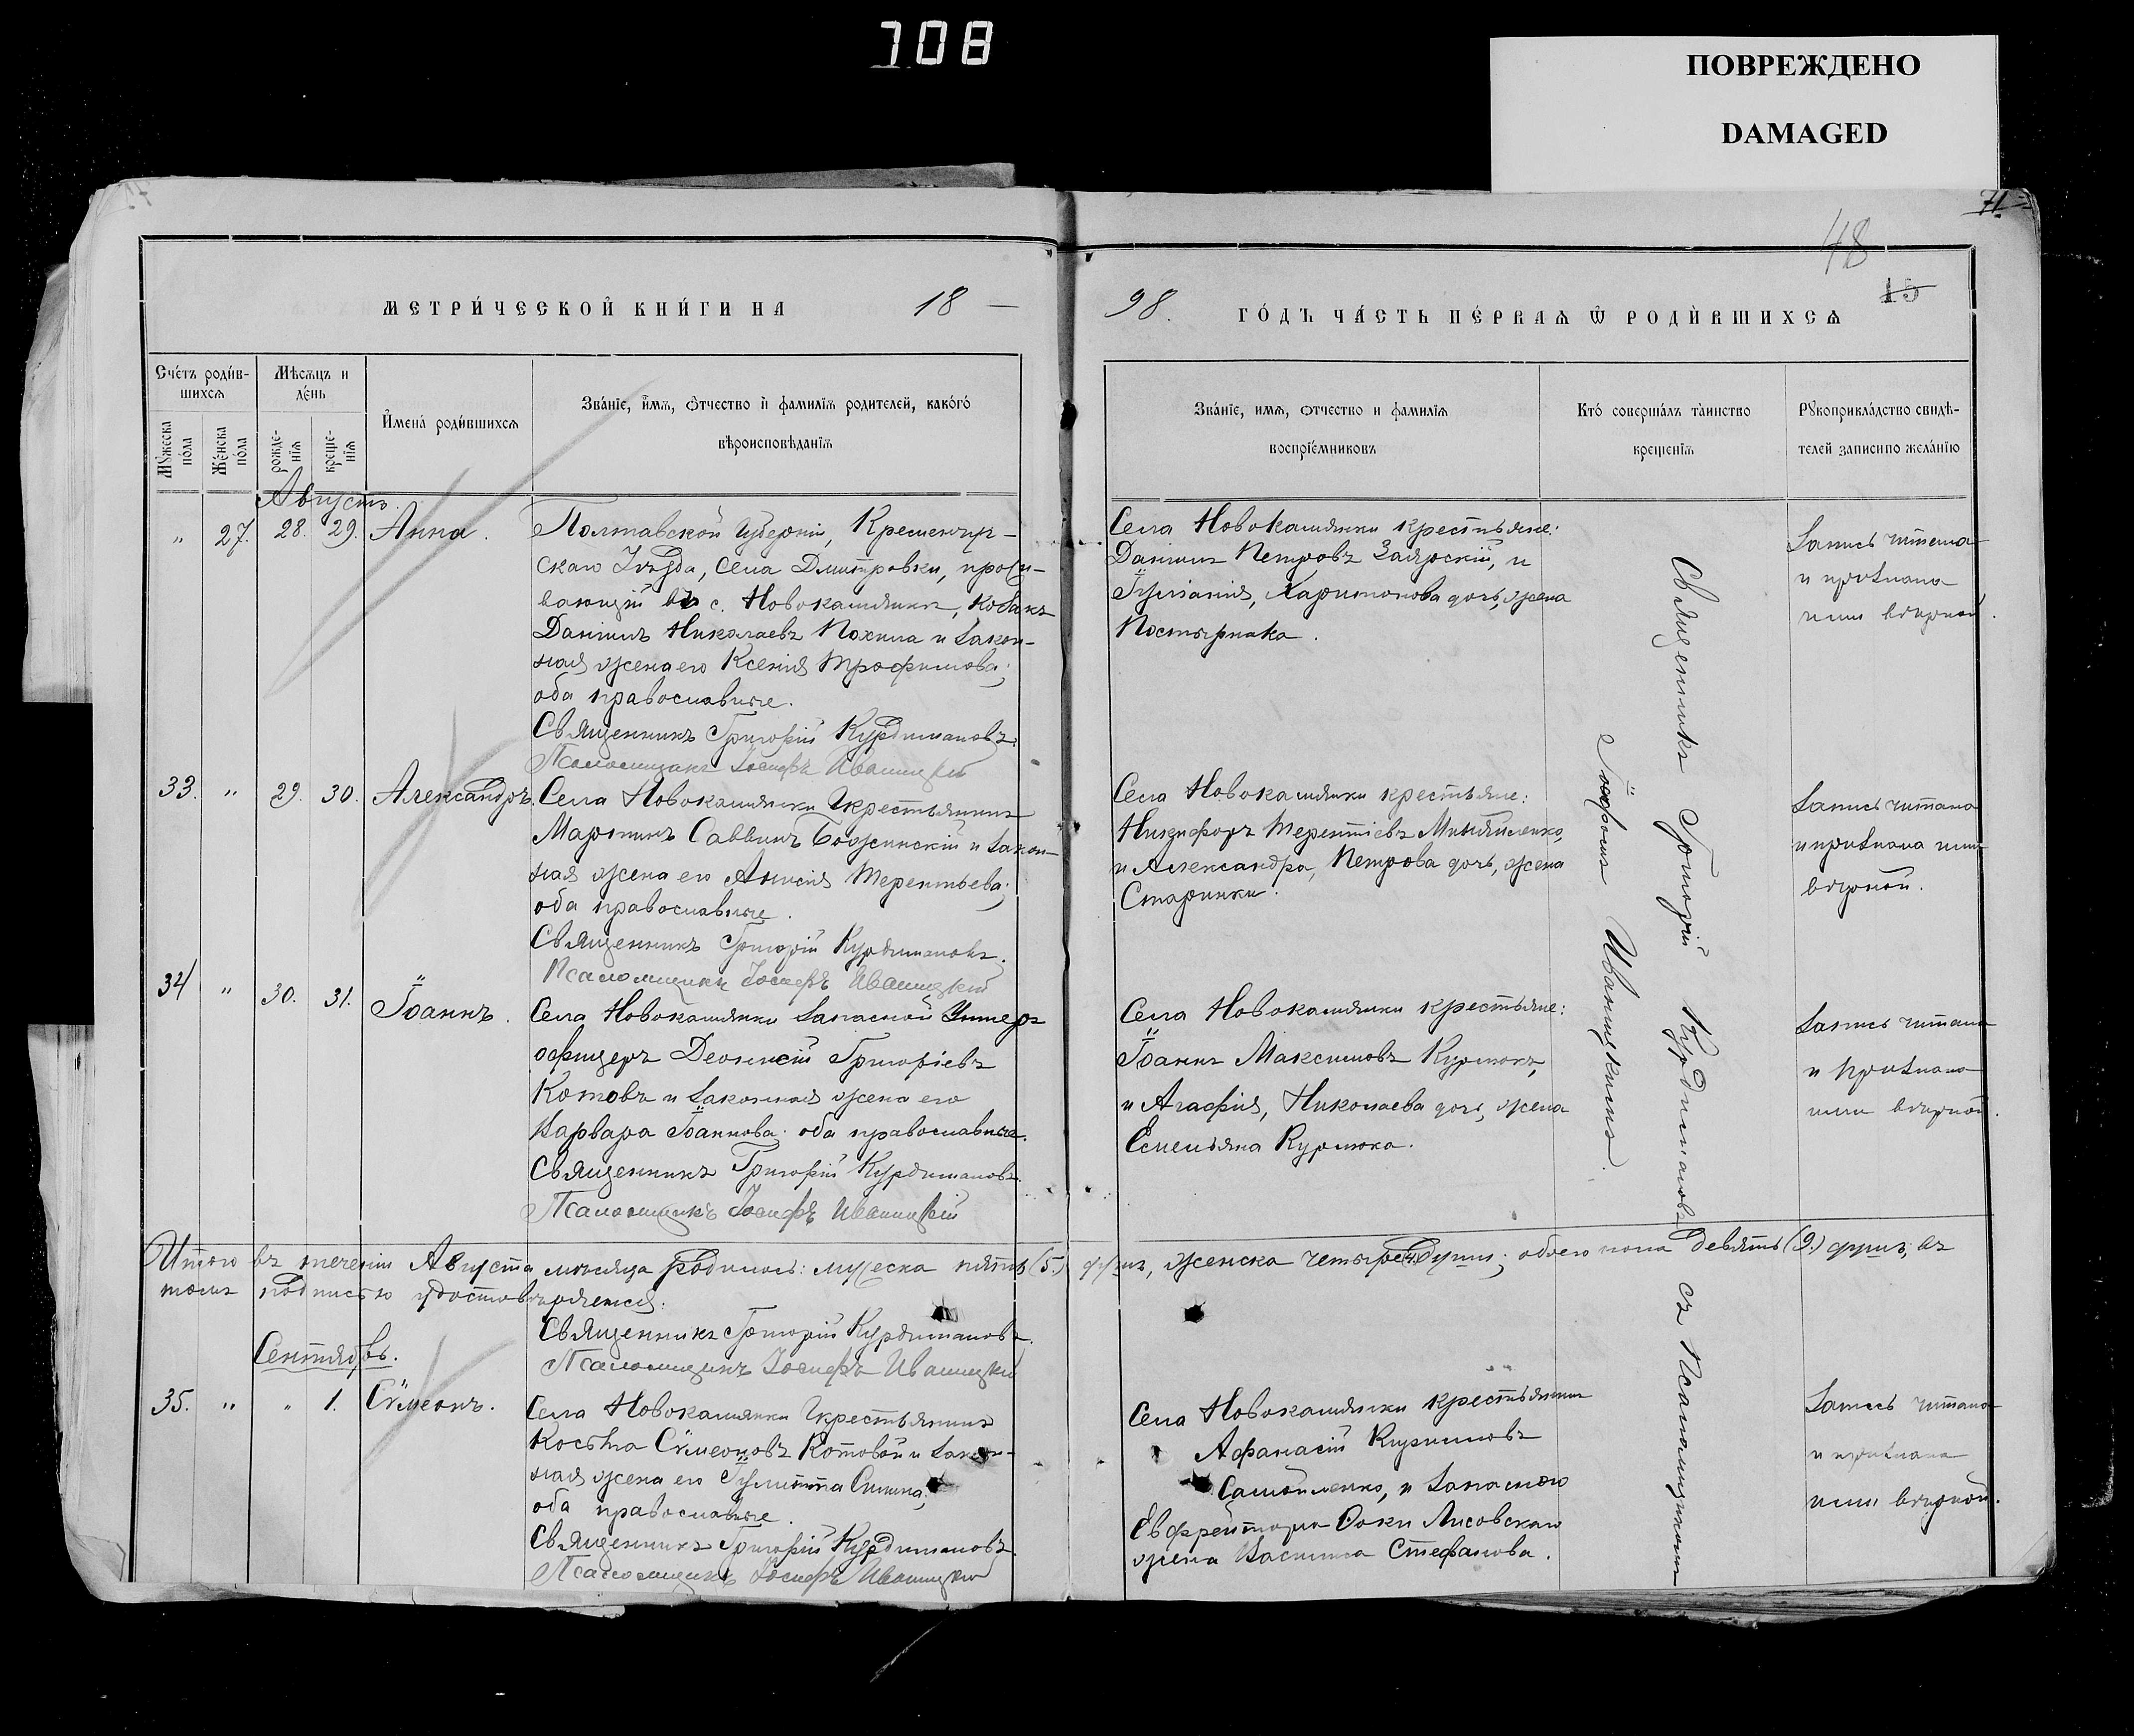 708
ПОВРЕЖДЕНО
DAMAGED
71
48
15
МЕТРИ́ЧЕСКОЙ КНИ́ГИ НА 18 —
98. ГО́ДЪ ЧА́СТЬ ПЕ́РВАѦ Ѿ РОДИ́ВШИХСѦ
Сче́тъ роди́в-
шихсѧ
Мѣсѧцъ и
де́нь
Имена́ роди́вшихсѧ
Зва́нїе, имѧ, ѻтчество и фамилїѧ родителей, како́гѡ
вѣроисповѣданїѧ
Мꙋ́жеска
по́ла
Же́нска
по́ла
рожде-
нїѧ
креще-
нїѧ
Зва́нїе, имѧ, ѻтчество и фамилїѧ
воспрїе́мниковъ
Кто́ соверша́лъ та́инство
крещенїѧ
Рꙋкоприкла́дство свидѣ-
телей записи по жела́нїю
Августъ.
" 27. 28. 29. Анна.
Полтавской губерніи, Кременчуг-
скаго Уѣзда, села Дмитровки, прожи-
вающій въ с. Новокамянкѣ, козакъ
Даніилъ Николаевъ Похила и закон-
ная жена его Ксенія Трофимова;
оба православные.
Священникъ Григорій Курдимановъ.
Псаломщикъ Іосифъ Иваницкій
Села Новокамянки крестьяне:
Даніилъ Петровъ Заярскій, и
Іуліанія, Харитонова дочь, жена
Постырнака.
Запись читана
и признана
ими вѣрной.
33. " 29. 30. Александръ.
Села Новокамянки крестьянинъ
Мартинъ Саввинъ Божинскій и закон-
ная жена его Анисія Терентьева;
оба православные.
Священникъ Григорій Курдимановъ.
Псаломщикъ Іосифъ Иваницкій
Села Новокамянки крестьяне:
Никифоръ Терентіевъ
и Александра, Петрова дочь, жена
Старинки.
Запись читана
и признана ими
вѣрной.
34 " 30. 31. Іоаннъ.
Села Новокамянки запасной Унтеръ
офицеръ Деонисій Григоріевъ
Котовъ и законная жена его
Варвара Іоаннова; оба православные.
Священникъ Григорій Курдимановъ.
Псаломщикъ Іосифъ Иваницкій
Села Новокамянки крестьяне:
Іоаннъ Максимовъ Курлюкъ,
и Агафія, Николаева дочь, жена
Емельяна Курлюка.
Запись читана
и признана
ими вѣрной.
Священникъ Григорій Курдимановъ съ Псаломщикомъ
Іосифомъ Иваницкимъ.
Итого въ теченіи Августа мѣсяца родилось: мужеска пять (5.) душъ, женска четыре (4) души; обоего пола девять (9.) душъ, въ
томъ подписью удостовѣряется:
Священникъ Григорій Курдимановъ.
Псаломщикъ Іосифъ Иваницкій
Сентябрь.
35. " " 1. Сѵмеонъ.
Села Новокамянки крестьянинъ
Косьма Сѵмеоновъ Котовой и закон-
ная жена его Іулитта
оба православные.
Священникъ Григорій Курдимановъ.
Псаломщикъ Іосифъ Иваницкій
Села Новокамянки крестьянинъ
Афанасій
Самойленко, и запасного
Евфрейтора Фоки Лисовскаго
жена Васлиса Стефанова.
Запись читана
и признана
ими вѣрной.